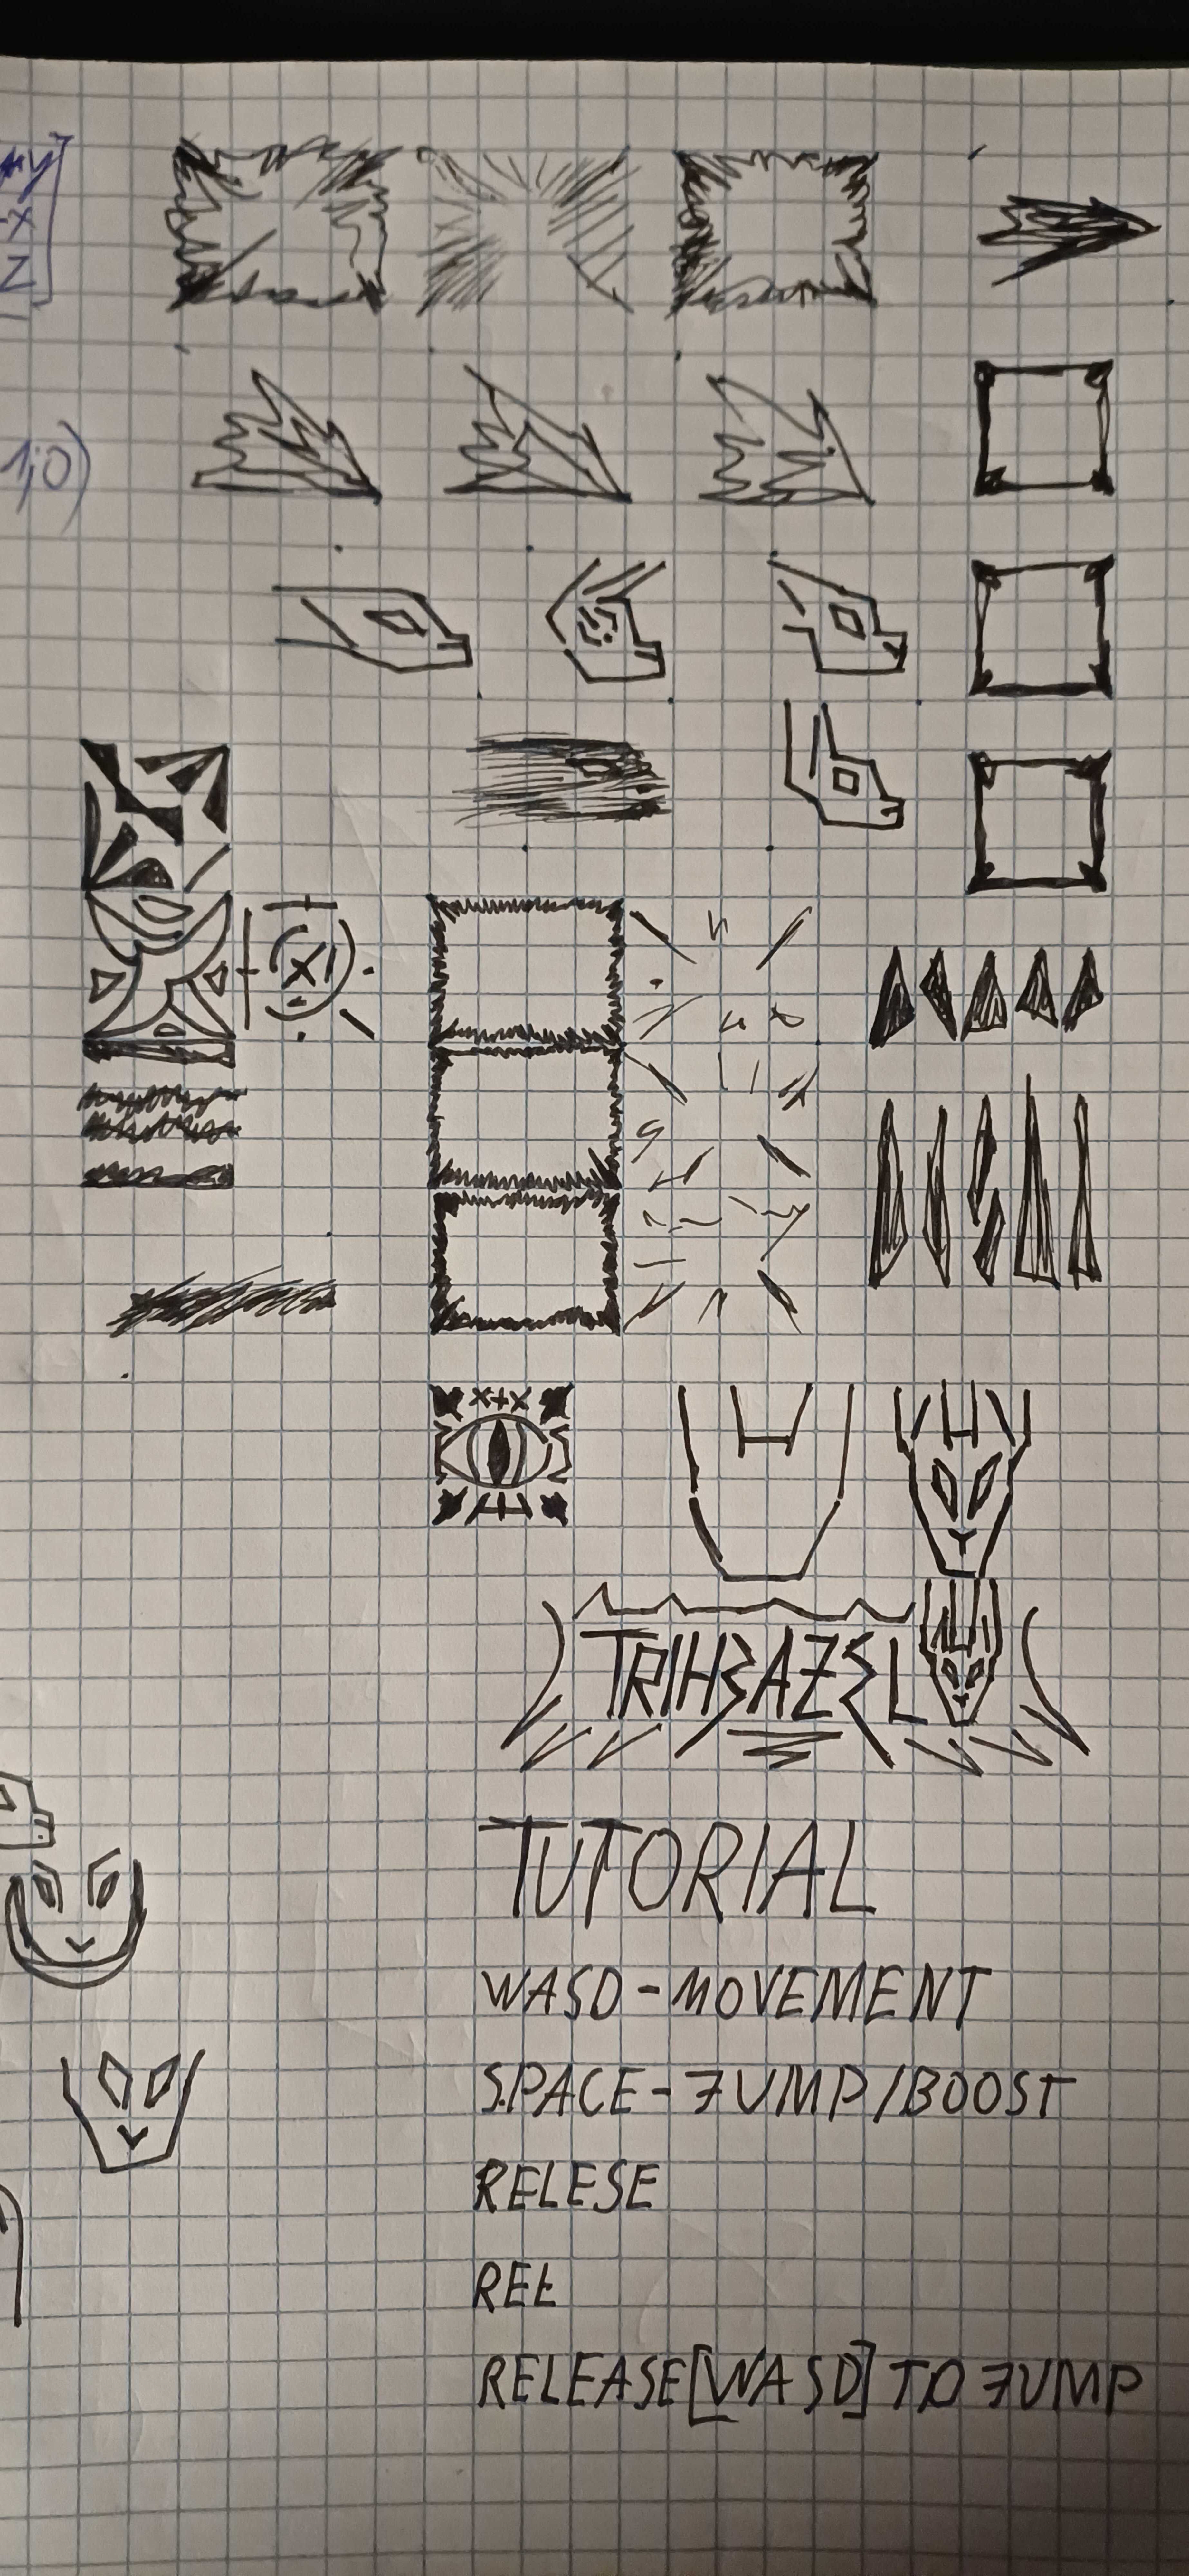 1;0)
x+x
TRIHEAZEL
TUTORIAL
WASD-MOVEMENT
SPACE-JUMP/BOOST
RELESE
REE
RELEASE[WASD] TO JUMP